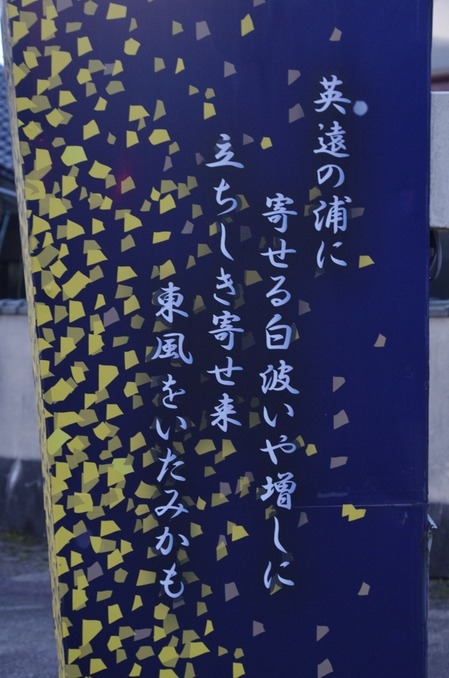 英遠の浦に
寄せる白波いや増しに
立ちしき寄せ来
東風をいたみかも